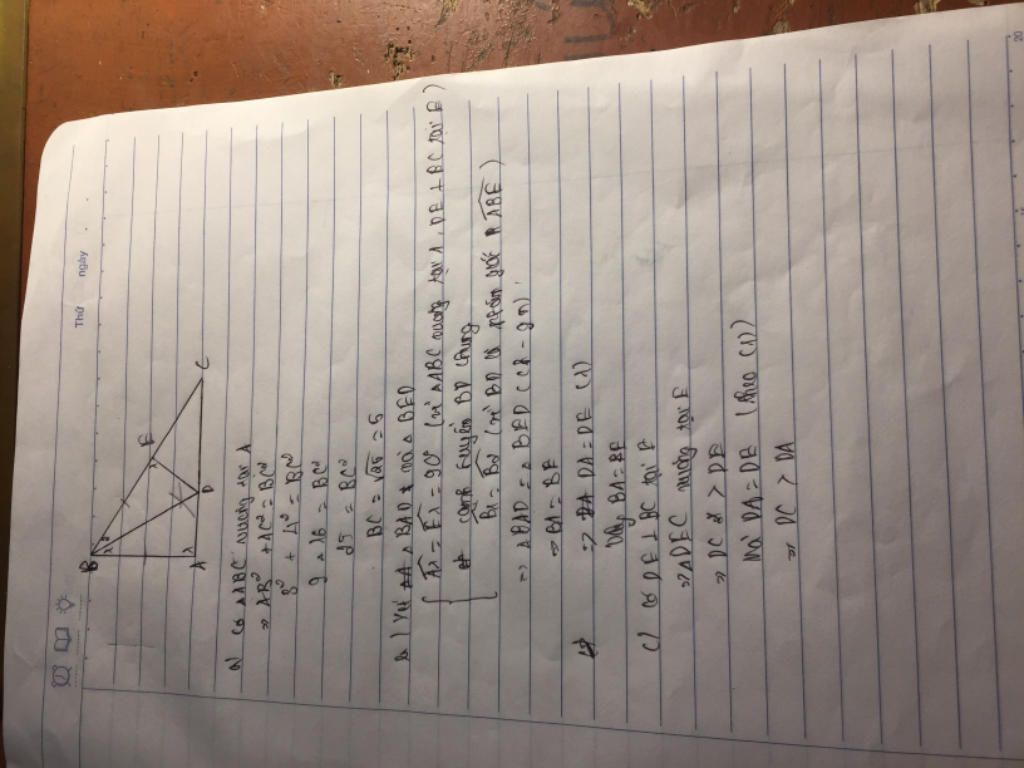 Thứ ngày
B
E
A
D
C
a) Có ΔABC vuông tại A
⇒ AB² + AC² = BC²
3² + 4² = BC²
9 + 16 = BC²
25 = BC²
BC = √25 = 5
b) Xét ΔBAD và ΔBED
A₁ = E₁ = 90° (vì ΔABC vuông tại A, DE ⊥ BC tại E)
cạnh huyền BD chung
B₁ = B₂ (vì BD là phân giác ABE)
⇒ ΔBAD = ΔBED (ch - gn)
⇒ BA = BE
⇒ DA = DE (1)
Vậy BA = BE
c) Có DE ⊥ BC tại E
⇒ ΔDEC vuông tại E
⇒ DC > DE
Mà DA = DE (theo (1))
⇒ DC > DA
20